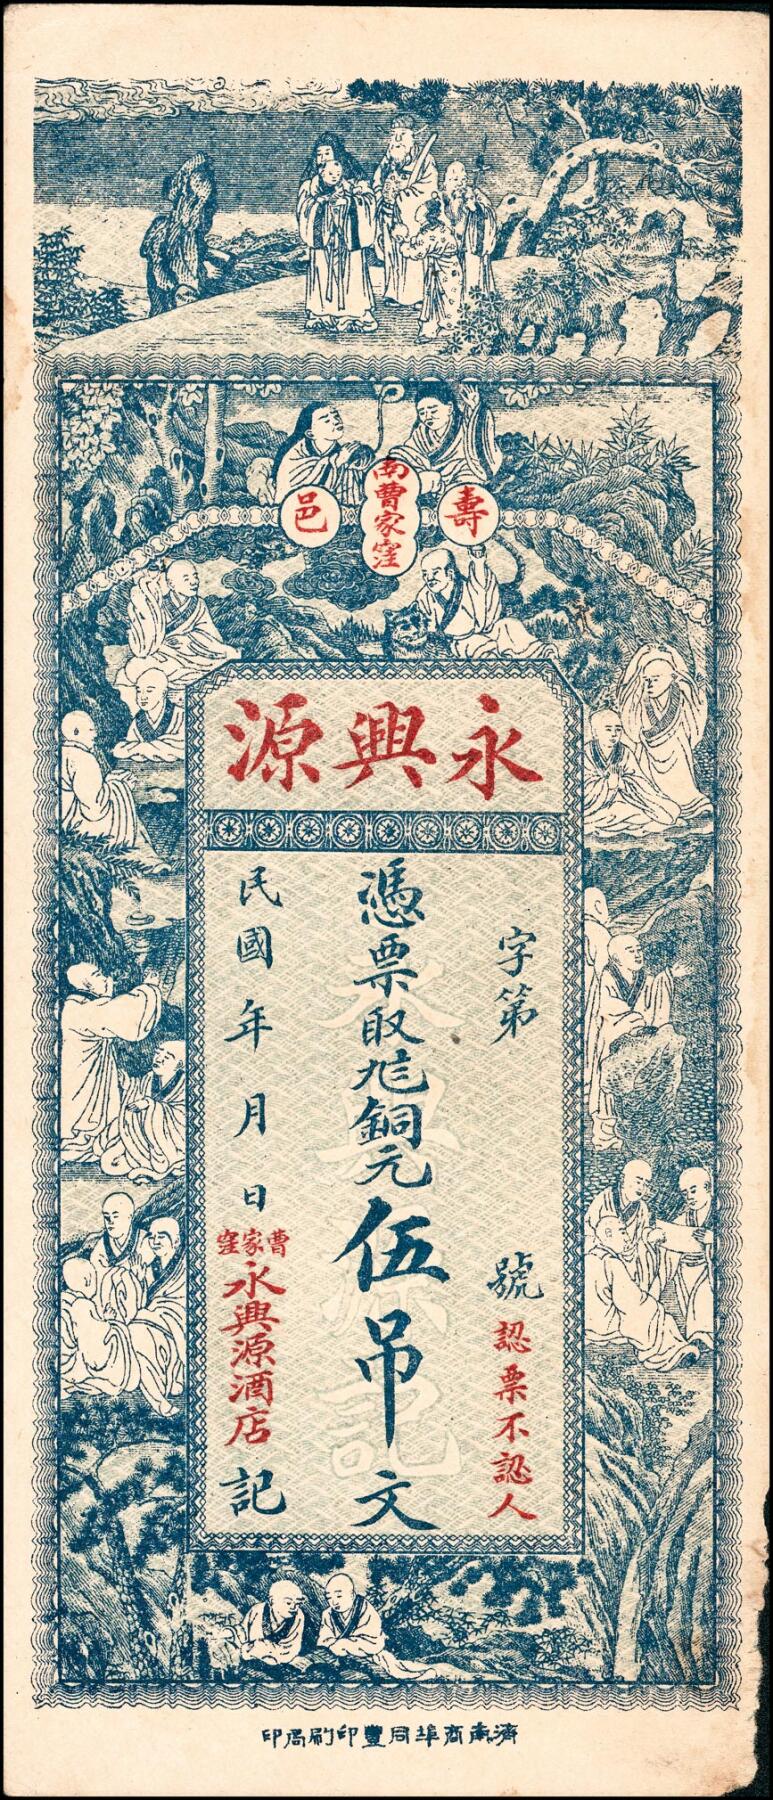 壽邑
南曹家窪
永興源
字第號
認票不認人
憑票取九八銅元伍吊文
民國年月日
曹家窪
永興源酒店記
永興源記
濟南商埠同豐印刷局印